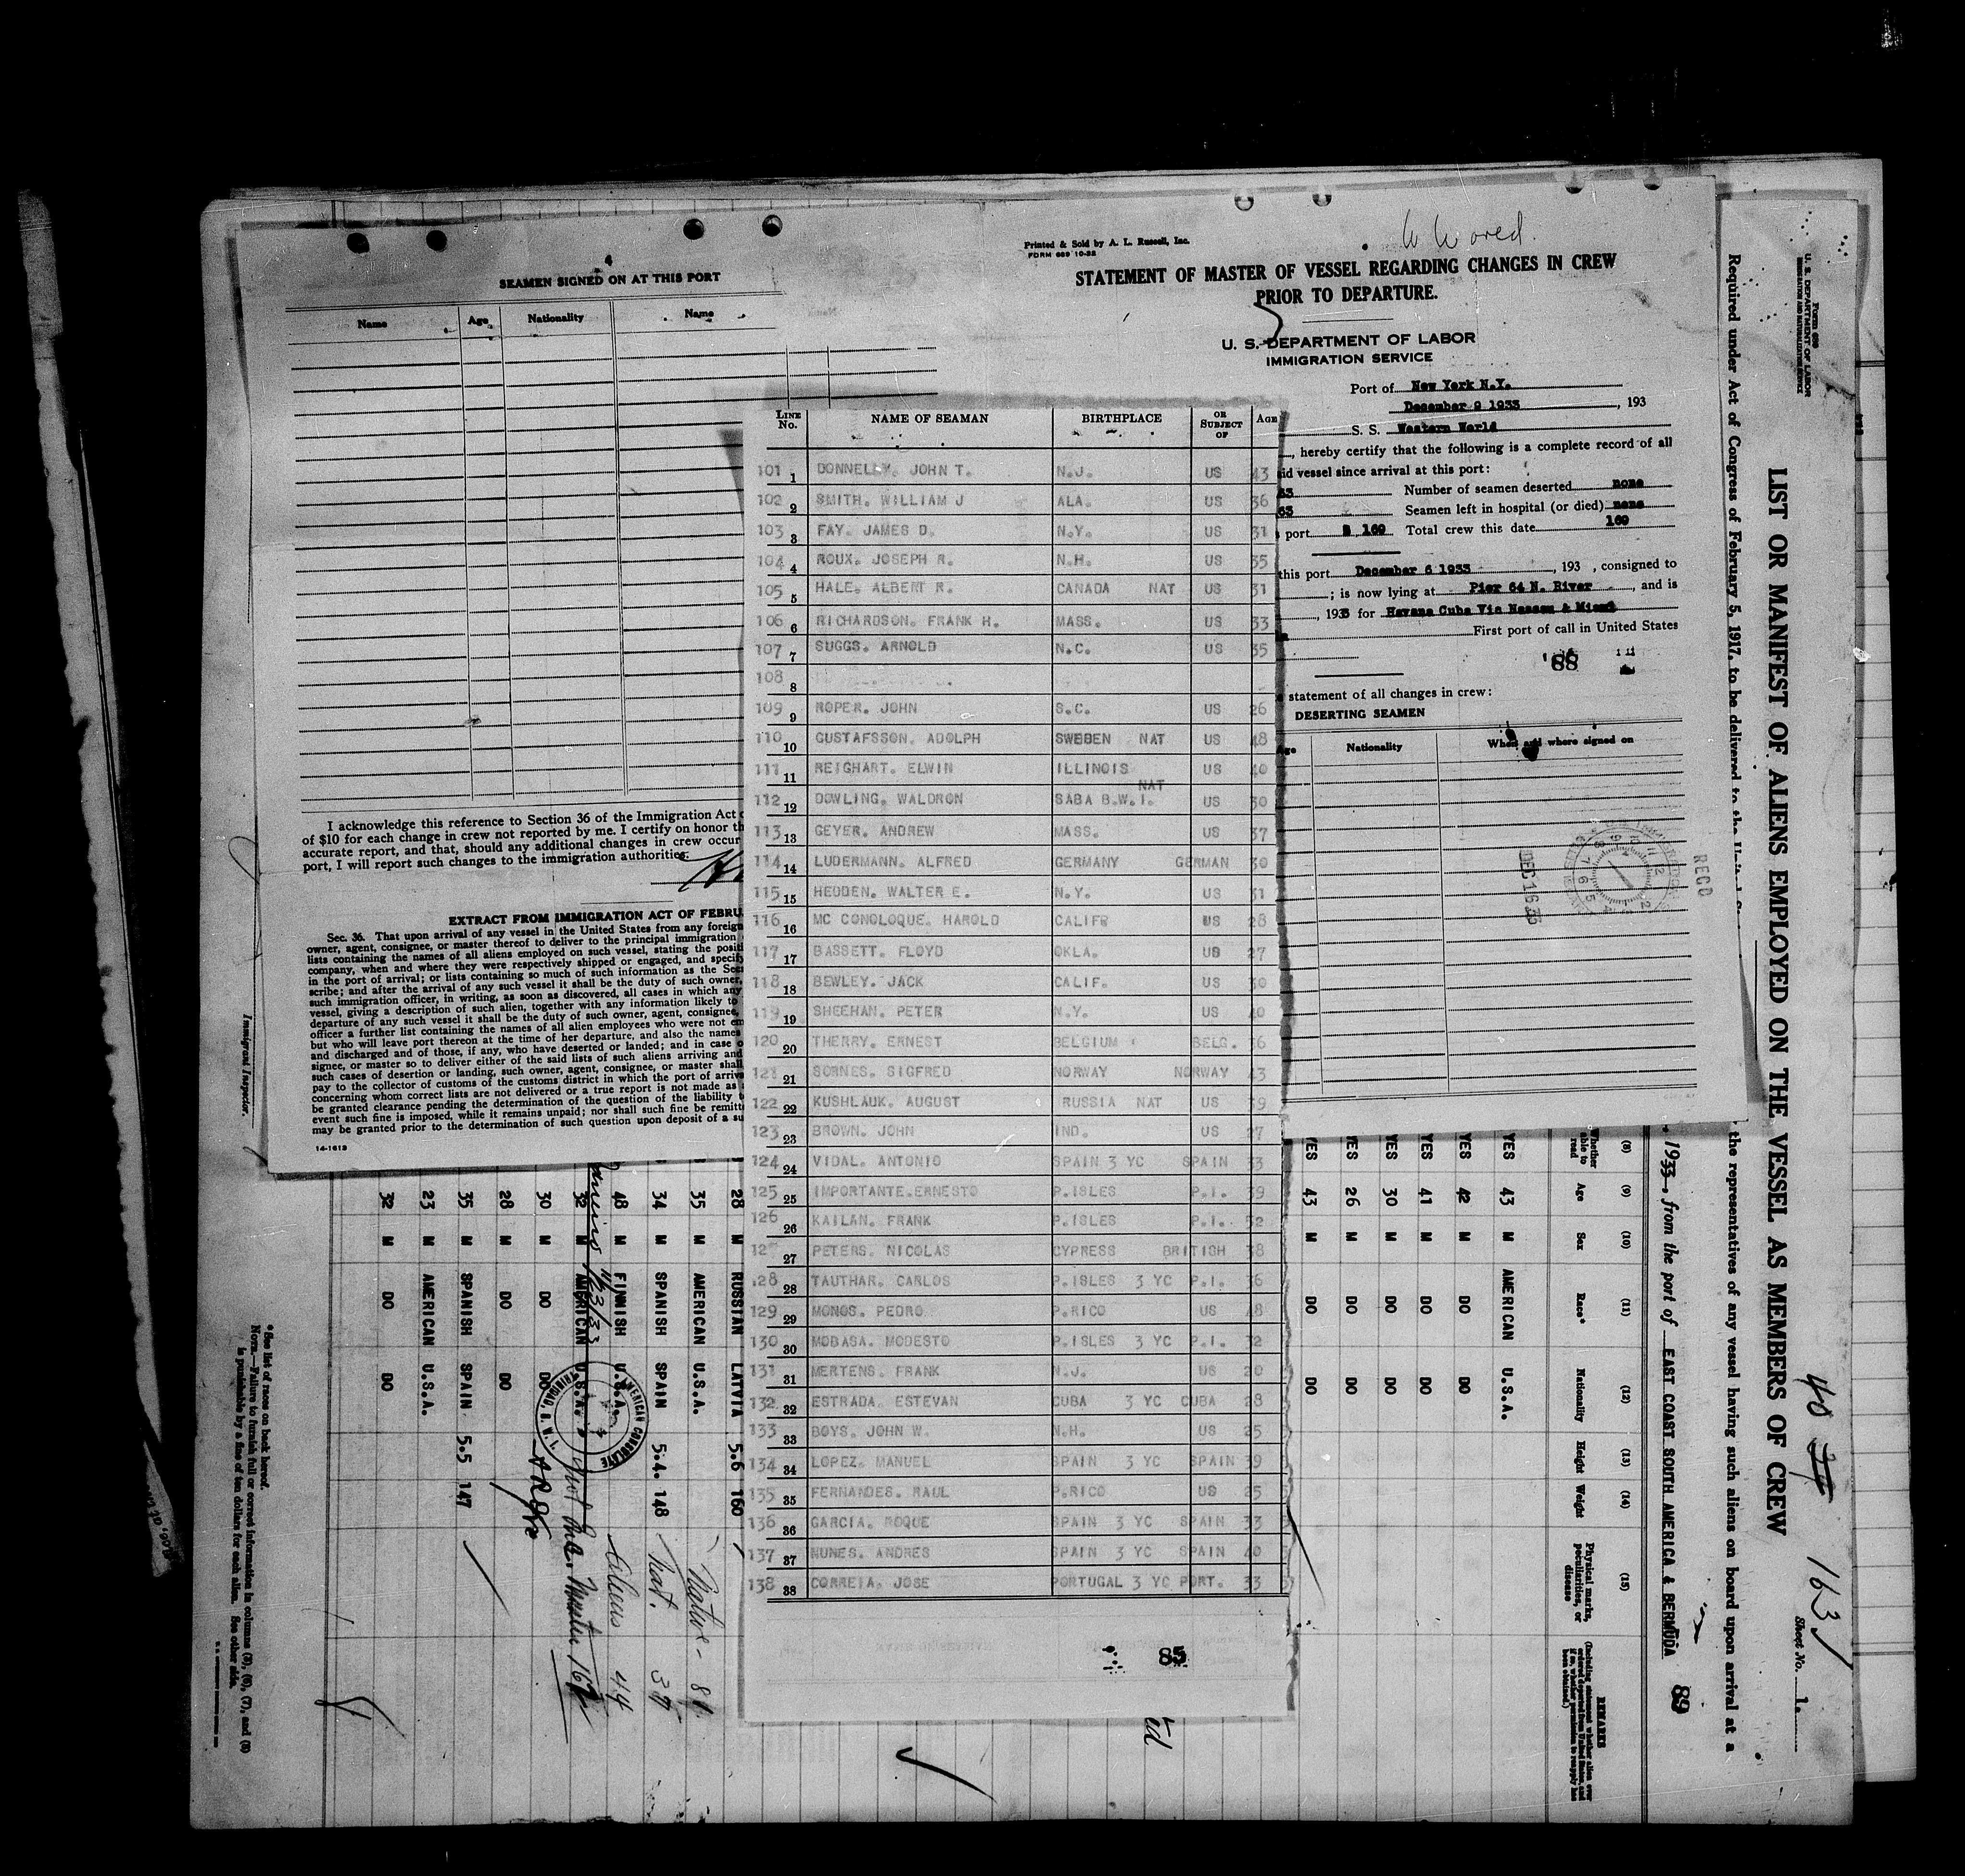 4
SEAMEN SIGNED ON AT THIS PORT
Name Age Nationality Name
I acknowledge this reference to Section 36 of the Immigration Act
of $10 for each change in crew not reported by me. I certify on honor th
accurate report, and that, should any additional changes in crew occur
port, I will report such changes to the immigration authorities.
EXTRACT FROM IMMIGRATION ACT OF FEBRU
Sec. 36. That upon arrival of any vessel in the United States from any foreign
owner, agent, consignee, or master thereof to deliver to the principal immigration
lists containing the names of all aliens employed on such vessel, stating the positi
company, when and where they were respectively shipped or engaged, and specify
in the port of arrival; or lists containing so much of such information as the Sec
scribe; and after the arrival of any such vessel it shall be the duty of such owner,
such immigration officer, in writing, as soon as discovered, all cases in which any
vessel, giving a description of such alien, together with any information likely to
departure of any such vessel it shall be the duty of such owner, agent, consignee,
officer a further list containing the names of all alien employees who were not em
but who will leave port thereon at the time of her departure, and also the names
and discharged and of those, if any, who have deserted or landed; and in case o
signee, or master so to deliver either of the said lists of such aliens arriving and
such cases of desertion or landing, such owner, agent, consignee, or master shall
pay to the collector of customs of the customs district in which the port of arriva
concerning whom correct lists are not delivered or a true report is not made as
be granted clearance pending the determination of the question of the liability t
event such fine is imposed, while it remains unpaid; nor shall such fine be remitt
may be granted prior to the determination of such question upon deposit of a su
14-1613
Printed & Sold by A. L. Russell, Inc.
FORM 689 10-32
STATEMENT OF MASTER OF VESSEL REGARDING CHANGES IN CREW
PRIOR TO DEPARTURE.
U. S. DEPARTMENT OF LABOR
IMMIGRATION SERVICE
Port of New York N.Y.
December 9 1933, 193
S. S. Western World
, hereby certify that the following is a complete record of all
id vessel since arrival at this port:
63 Number of seamen deserted none
63 Seamen left in hospital (or died) none
port 169 Total crew this date 169
this port December 6 1933, 193 , consigned to
; is now lying at Pier 64 N. River, and is
, 1933 for Havana Cuba Via Nassau & Miami
First port of call in United States
88
statement of all changes in crew:
DESERTING SEAMEN
Age Nationality When and where signed on
DEC 16 33
RECD
LINE No. NAME OF SEAMAN BIRTHPLACE OR SUBJECT OF AGE
101 1 DONNELLY. JOHN T. N.J. US 43
102 2 SMITH. WILLIAM J ALA. US 36
103 3 FAY. JAMES D. N.Y. US 31
104 4 ROUX. JOSEPH R. N.H. US 35
105 5 HALE. ALBERT R. CANADA NAT US 31
106 6 RICHARDSON. FRANK H. MASS. US 33
107 7 SUGGS. ARNOLD N.C. US 35
108 8
109 9 ROPER. JOHN S.C. US 26
110 10 GUSTAFSSON. ADOLPH SWEDEN NAT US 48
111 11 REIGHART. ELWIN ILLINOIS US 40
112 12 DOWLING. WALDRON SABA B.W.I. NAT US 30
113 13 GEYER. ANDREW MASS. US 37
114 14 LUDERMANN. ALFRED GERMANY GERMAN 30
115 15 HEDDEN. WALTER E. N.Y. US 31
116 16 MC CONOLOQUE. HAROLD CALIFR US 28
117 17 BASSETT. FLOYD OKLA. US 27
118 18 BEWLEY. JACK CALIF. US 30
119 19 SHEEHAN. PETER N.Y. US 40
120 20 THERRY. ERNEST BELGIUM BELG. 36
121 21 SORNES. SIGFRED NORWAY NORWAY 43
122 22 KUSHLAUK. AUGUST RUSSIA NAT US 39
123 23 BROWN. JOHN IND. US 27
124 24 VIDAL. ANTONIO SPAIN 3 YC SPAIN 33
125 25 IMPORTANTE.ERNESTO P.ISLES P.I. 39
126 26 KAILAN. FRANK P.ISLES P.I. 32
127 27 PETERS. NICOLAS CYPRESS BRITISH 38
128 28 TAUTHAR. CARLOS P.ISLES 3 YC P.I. 36
129 29 MONOS. PEDRO P.RICO US 48
130 30 MOBASA. MODESTO P.ISLES 3 YC P.I. 32
131 31 MERTENS. FRANK N.J. US 20
132 32 ESTRADA. ESTEVAN CUBA 3 YC CUBA 28
133 33 BOYS. JOHN W. N.H. US 25
134 34 LOPEZ. MANUEL SPAIN 3 YC SPAIN 39
135 35 FERNANDES. RAUL P.RICO US 25
136 36 GARCIA. ROQUE SPAIN 3 YC SPAIN 33
137 37 NUNES. ANDRES SPAIN 3 YC SPAIN 40
138 38 CORREIA. JOSE PORTUGAL 3 YC PORT. 33
85
Form 689
U. S. DEPARTMENT OF LABOR
LIST OR MANIFEST OF ALIENS EMPLOYED ON THE VESSEL AS MEMBERS OF CREW
40 163
Sheet No. 1.
Required under Act of Congress of February 5, 1917, to be delivered to the
the representatives of any vessel having such aliens on board upon arrival at a
1933, from the port of EAST COAST SOUTH AMERICA & BERMUDA
89
(8) (9) (10) (11) (12) (13) (14) (15)
Whether able to read Age Sex Race* Nationality Height Weight Physical marks, peculiarities, or disease REMARKS
YES 43 M AMERICAN U.S.A.
YES 42 M DO DO
YES 41 M DO DO
YES 30 M DO DO
YES 26 M DO DO
YES 43 M DO DO
28 RUSSIAN LATVIA 5.6 160
35 M AMERICAN U.S.A. Native - 81
34 M SPANISH SPAIN 5.4. 148 Nat. 37
48 M FINNISH U.S.A. 44
32 M AMERICAN U.S.A.
30 M DO DO
28 M DO DO
35 M SPANISH SPAIN 5.5 147
23 M AMERICAN U.S.A.
32 M DO DO
AMERICAN CONSULATE
TRINIDAD, B. W. I.
Immigrant Inspector.
*See list of races on back hereof.
NOTE.—Failure to furnish full or correct information in columns (3), (6), (7), and (8)
is punishable by a fine of ten dollars for each alien. See other side.